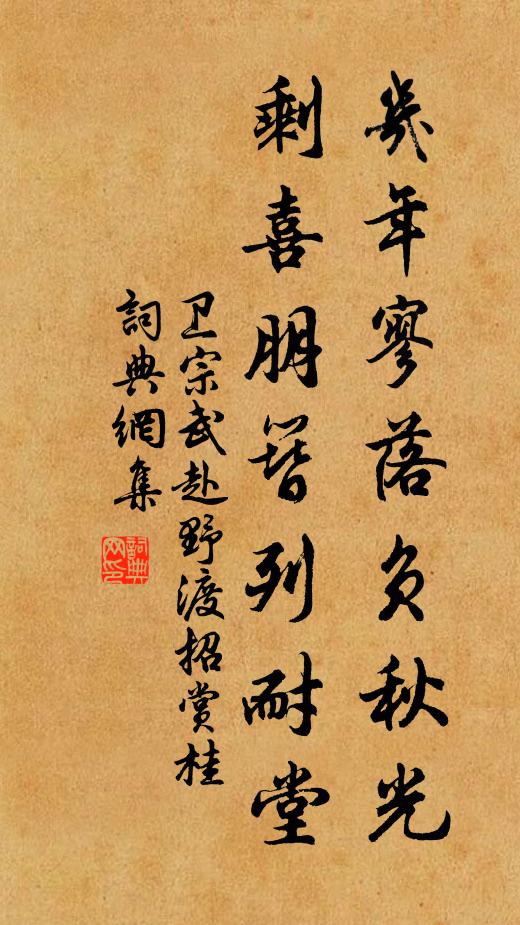 幾年寥落負秋光
剩喜朋簪列耐堂
卫宗武赴野渡招赏桂
詞典網集
詞典网印